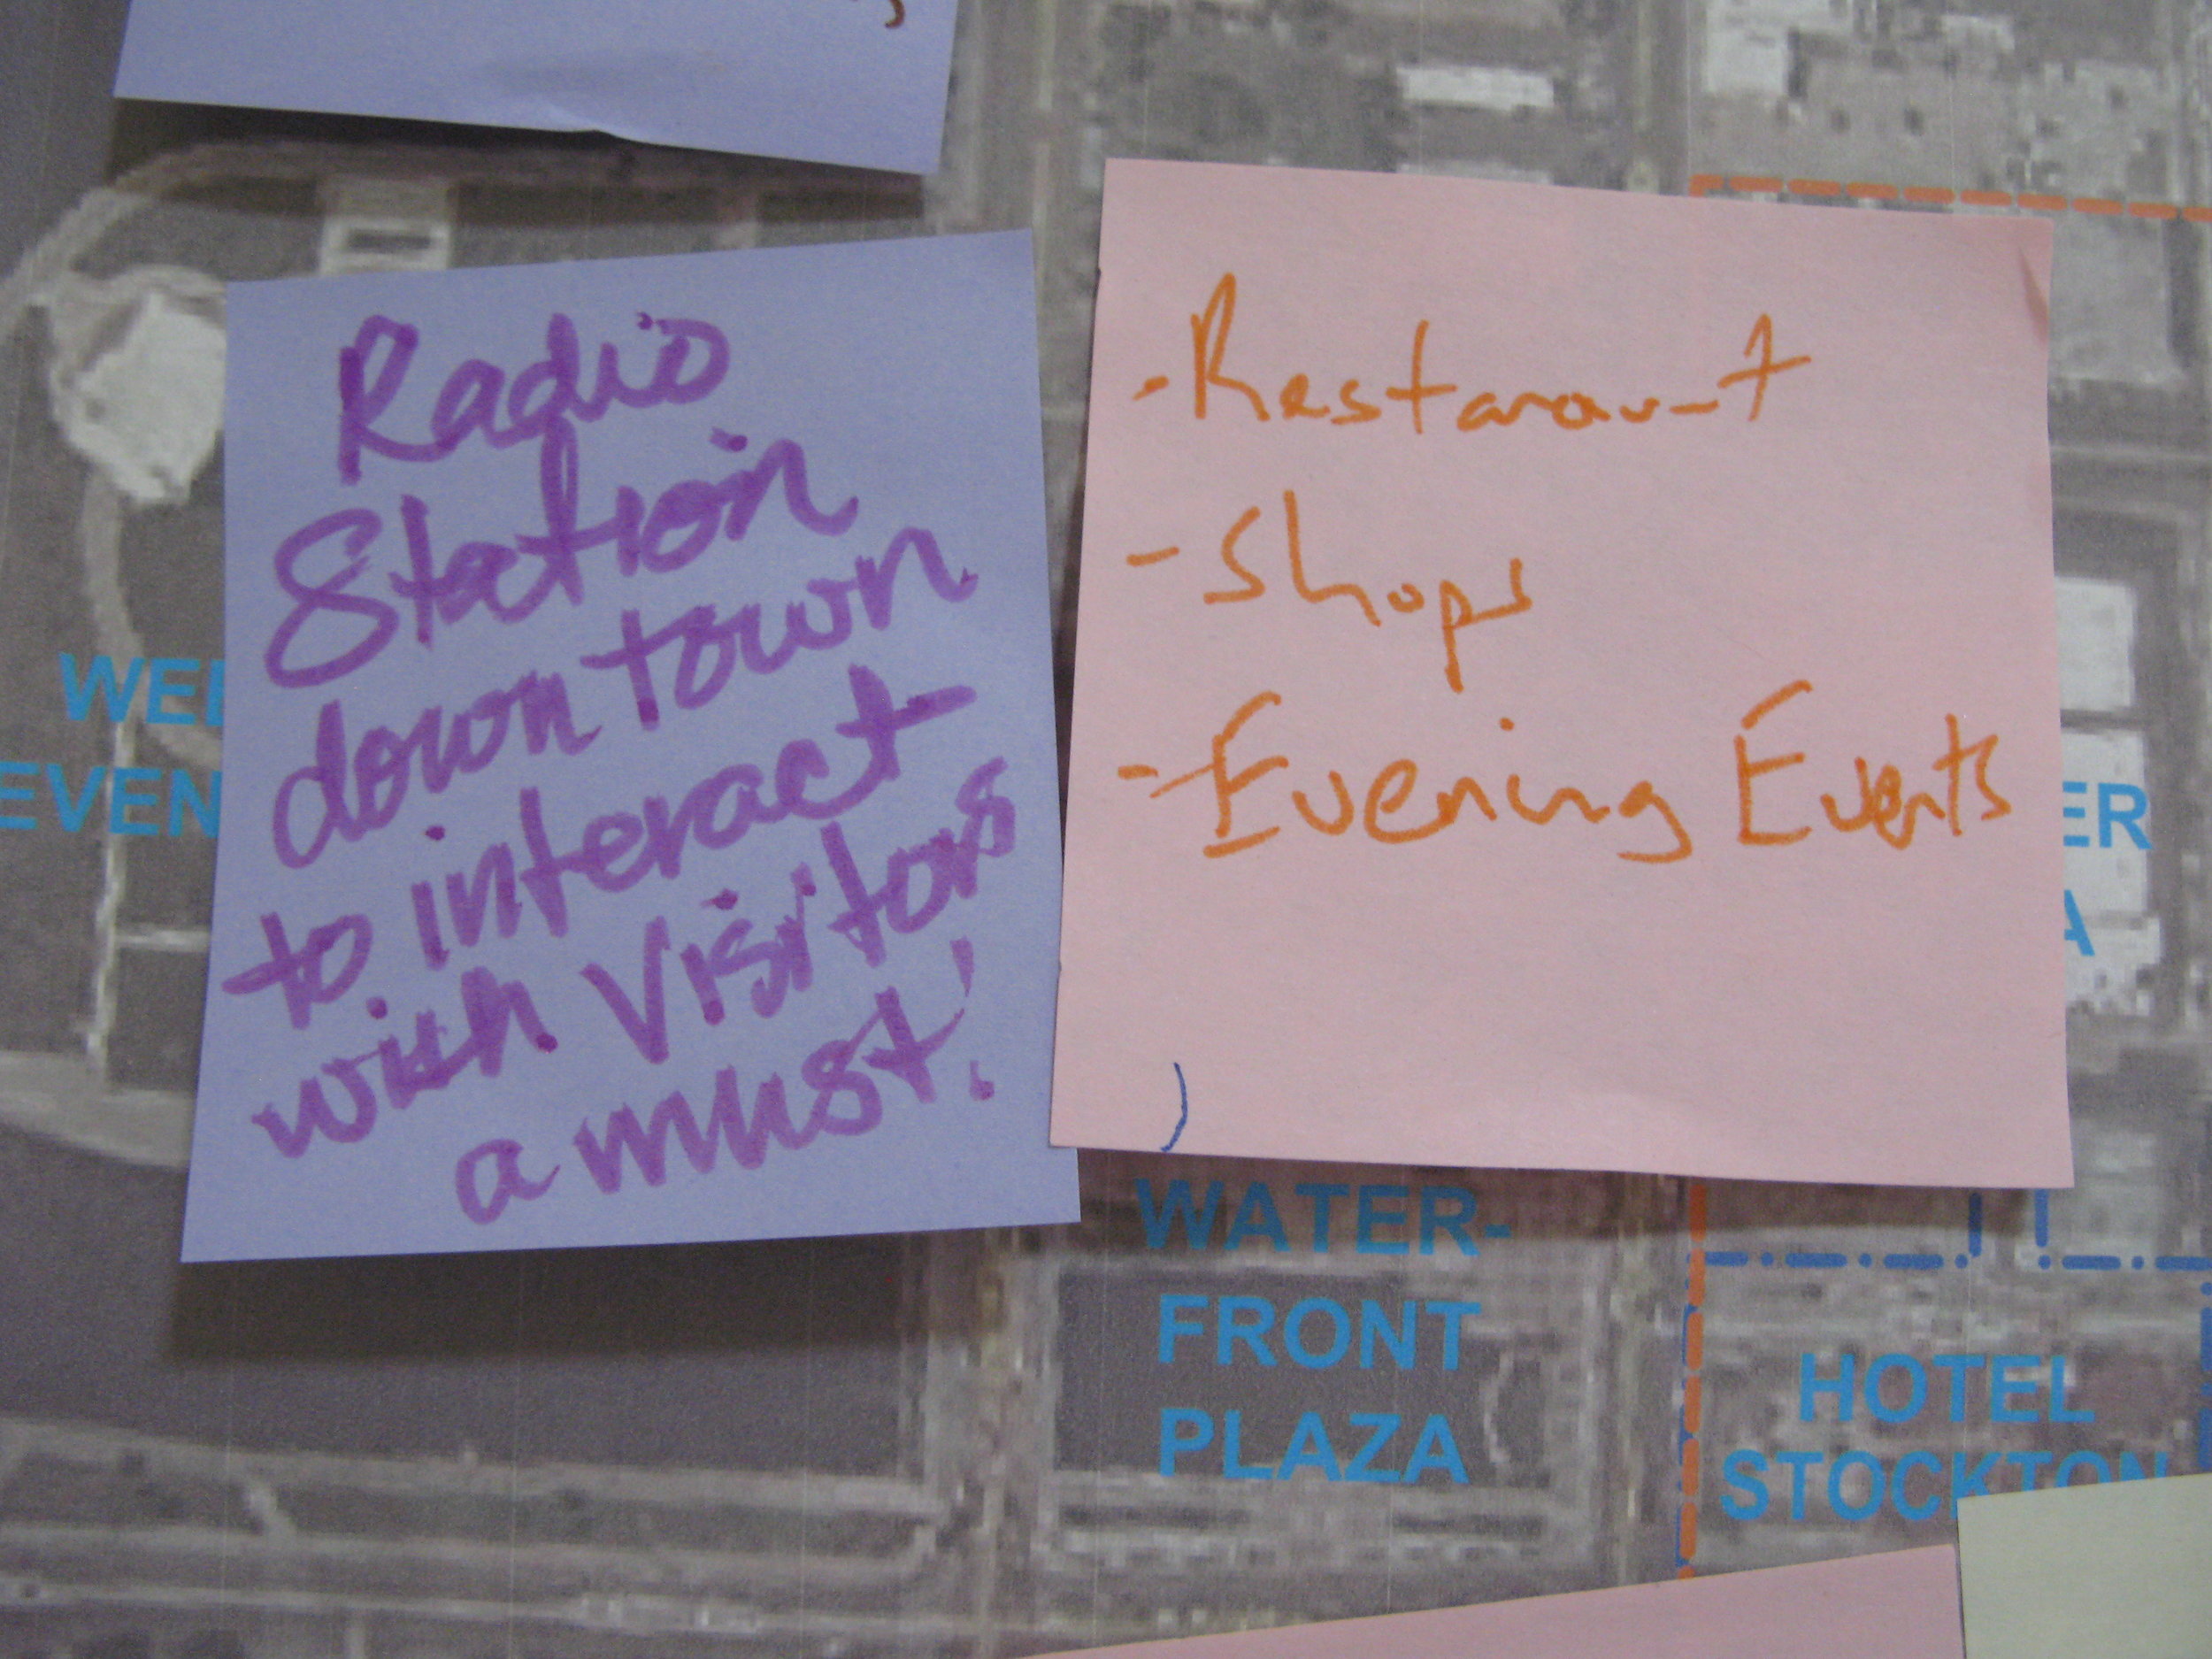 Radio
Station
down town
to interact
with Visitors
a must!
- Restaraunt
- Shops
- Evening Events
WATER-
FRONT
PLAZA
HOTEL
STOCKTON